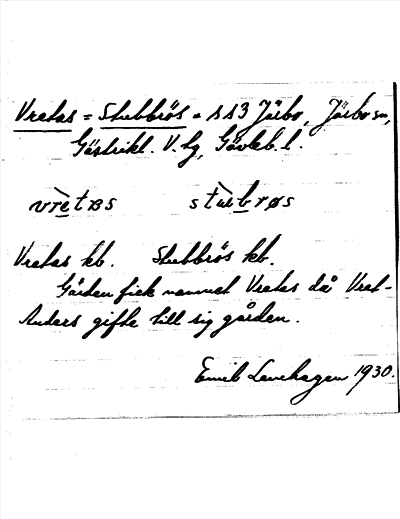 Vretas = Stubbrös = 113 Järbo, Järbo sn,
Gästrikl. V. hg, Gävleb. l.
vrètas stùbrøs
Vretas kb. Stubbrös kb.
Gården fick namnet Vretas då Vret-
Anders gifte till sig gården.
Emil Levehagen 1930.